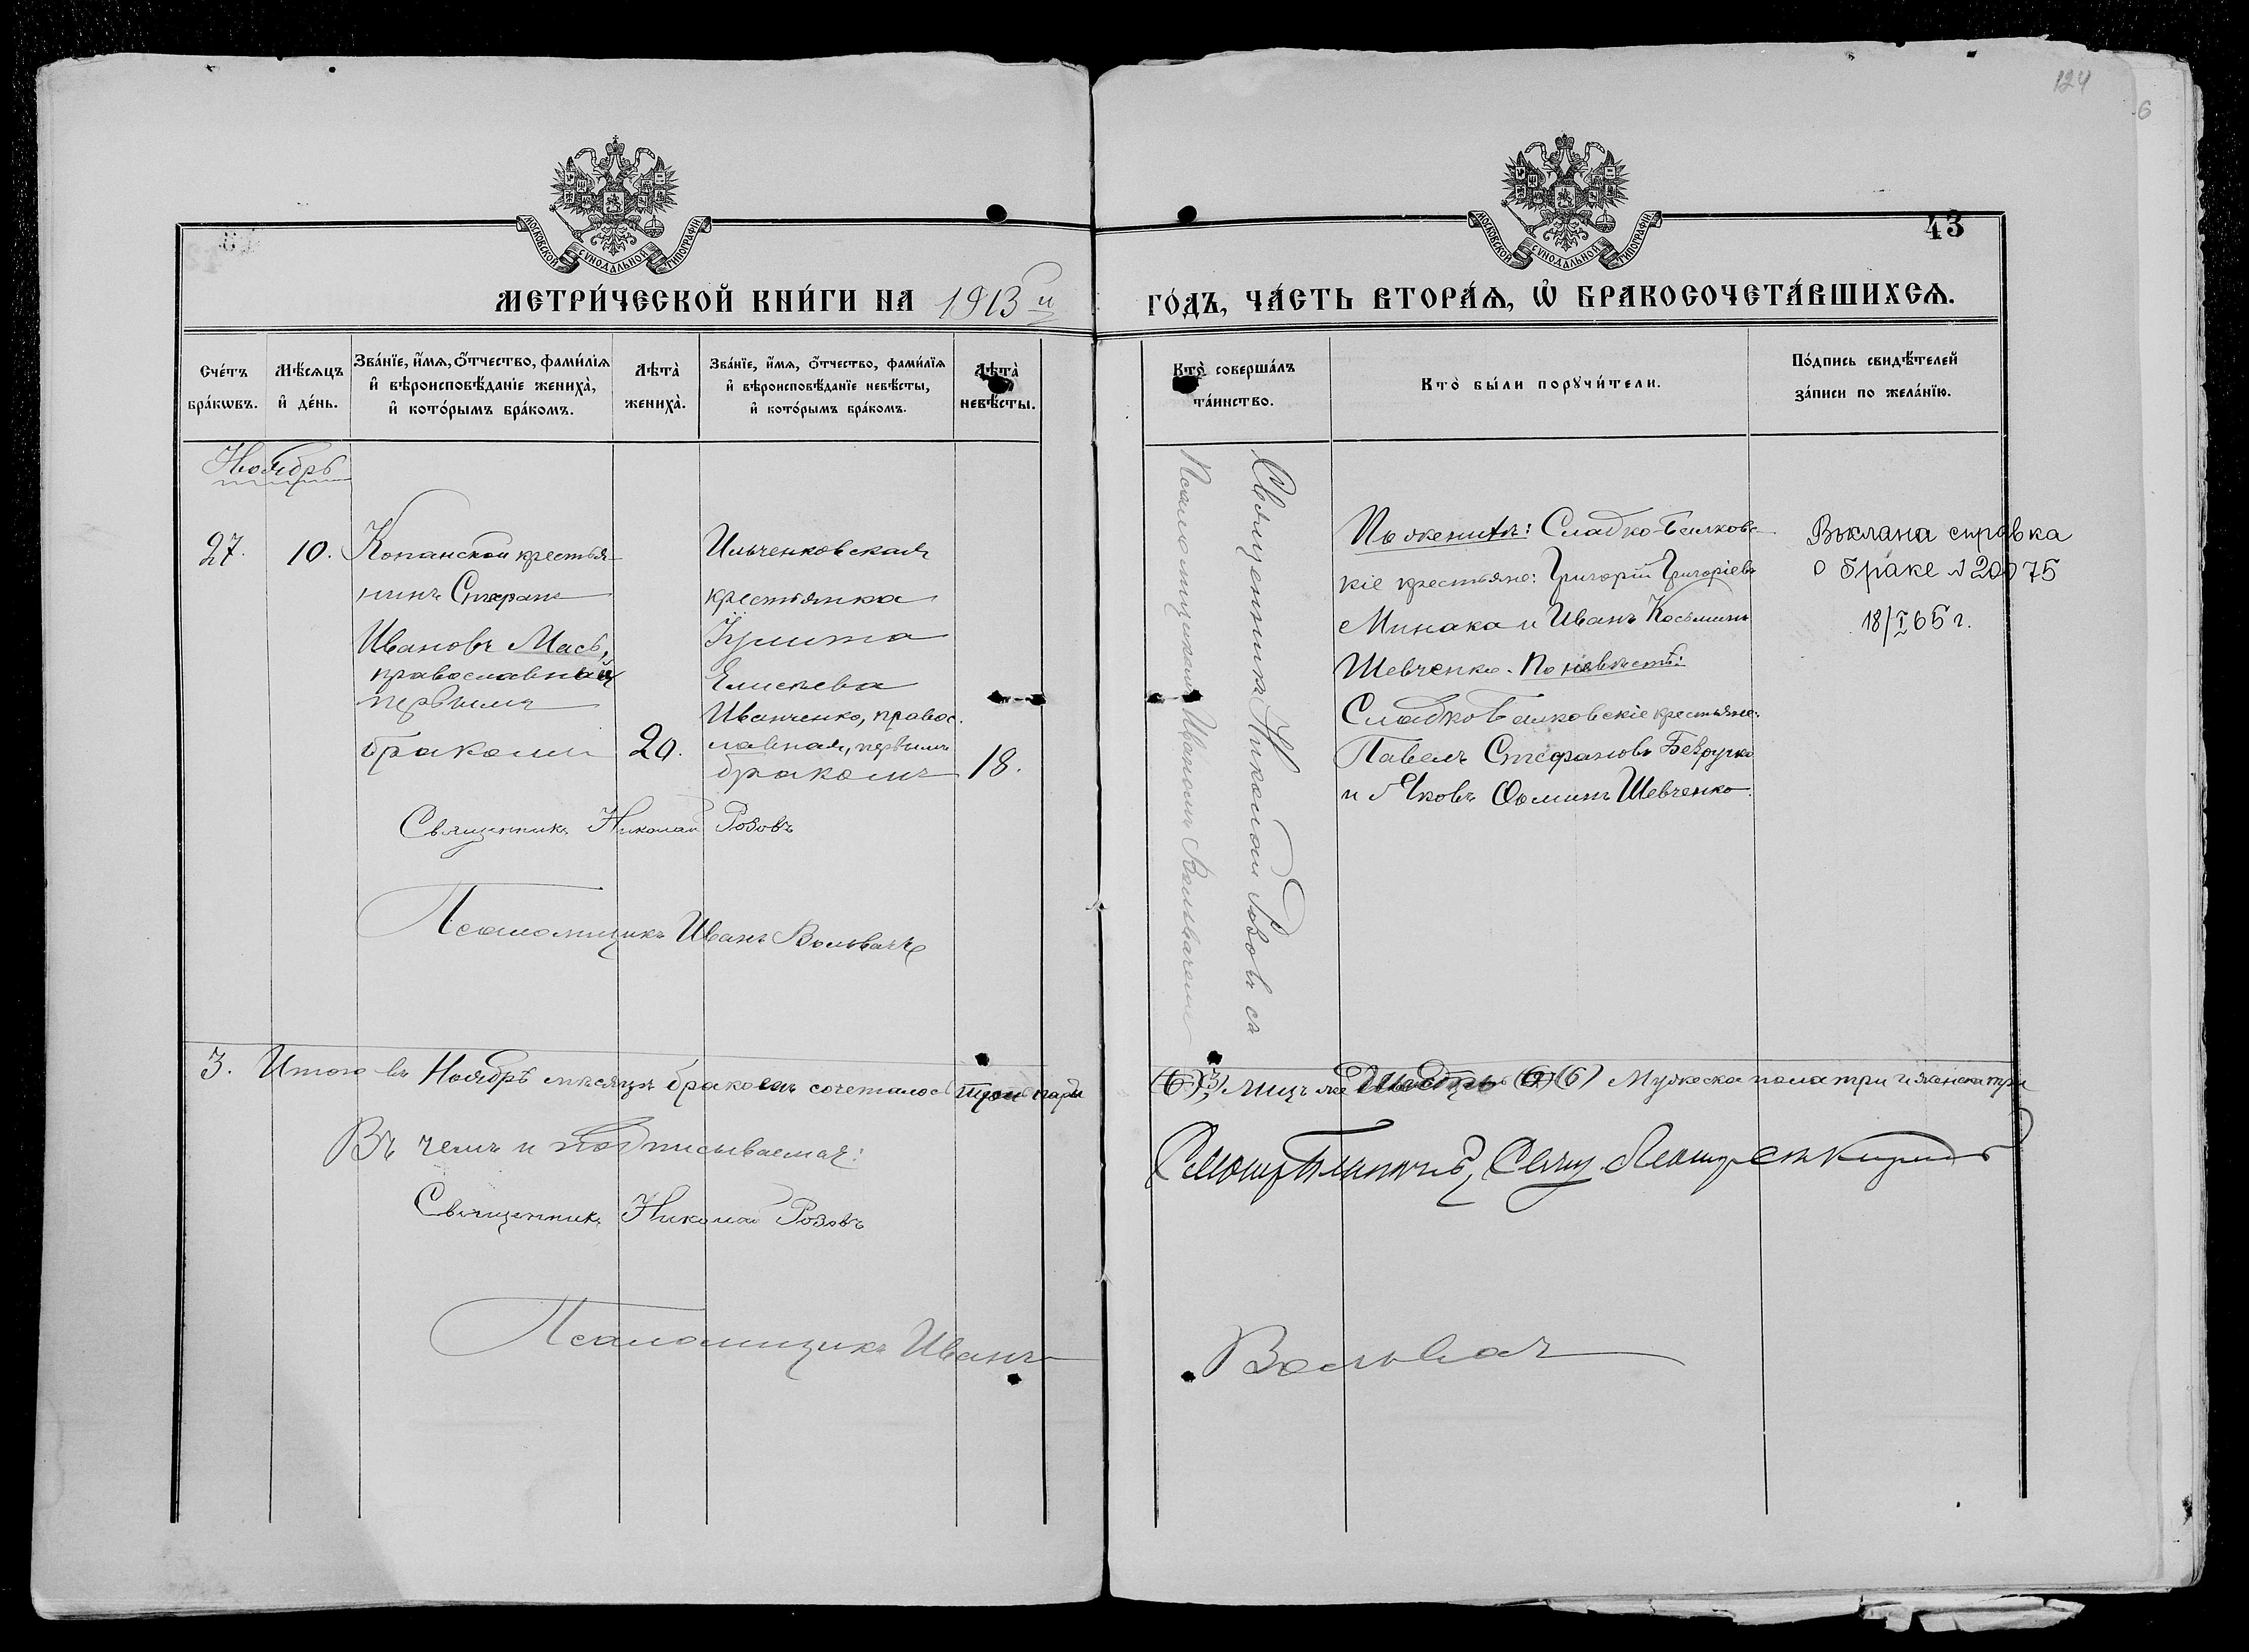 124
6
МОСКОВСКОЙ СѴНОДАЛЬНОЙ ТИПОГРАФІИ
МОСКОВСКОЙ СѴНОДАЛЬНОЙ ТИПОГРАФІИ
43
МЕТРИ́ЧЕСКОЙ КНИ́ГИ НА 1913й
ГО́ДЪ, ЧА́СТЬ ВТОРА́Ѧ, Ѽ БРАКОСОЧЕТА́ВШИХСѦ.
Сче́тъ бра́кѡвъ.
Мѣ́сяцъ и҆ де́нь.
Зва́нїе, и҆́мя, ѻ҆́тчество, фами́лїя и҆ вѣроисповѣ́данїе жениха̀, и҆ кото́рымъ бра́комъ.
Лѣта̀ жениха̀.
Зва́нїе, и҆́мя, ѻ҆́тчество, фами́лїя и҆ вѣроисповѣ́данїе невѣ́сты, и҆ кото́рымъ бра́комъ.
Лѣта̀ невѣ́сты.
Кто̀ соверша́лъ та́инство.
Кто̀ бы́ли порꙋчи́тели.
По́дпись свидѣ́телей за́писи по жела́нїю.
Ноябрь
27.
10.
Копанской крестья
нинъ Стефанъ
Ивановъ Мась,
православный
первымъ
бракомъ
20.
Ильченковская
крестьянка
Улита
Елисѣева
Иванченко, правос
лавная, первымъ
бракомъ
18.
Священникъ Николай Розовъ
Псаломщикъ Иванъ Вольвачъ
Священникъ Николай Розовъ съ
Псаломщикомъ Иваномъ Вольвачемъ
По женихѣ: Сладко-Балковс
кіе крестьяне: Григорій Григоріевъ
Минака и Иванъ Косьминъ
Шевченко. По невѣстѣ:
Сладкобалковскіе крестьяне:
Павелъ Стефановъ Безручко
и Яковъ Ѳоминъ Шевченко.
Выслана справка
о браке № 20075
18/I 65 г.
3. Итого въ Ноябрѣ мѣсяцѣ бракомъ сочеталось три пары
3, лицъ же шесть (6) Мужеска пола три и женска три
Въ чемъ и подписываемся:
Священникъ Николай Розовъ
Псаломщикъ Иванъ
Вольвачъ